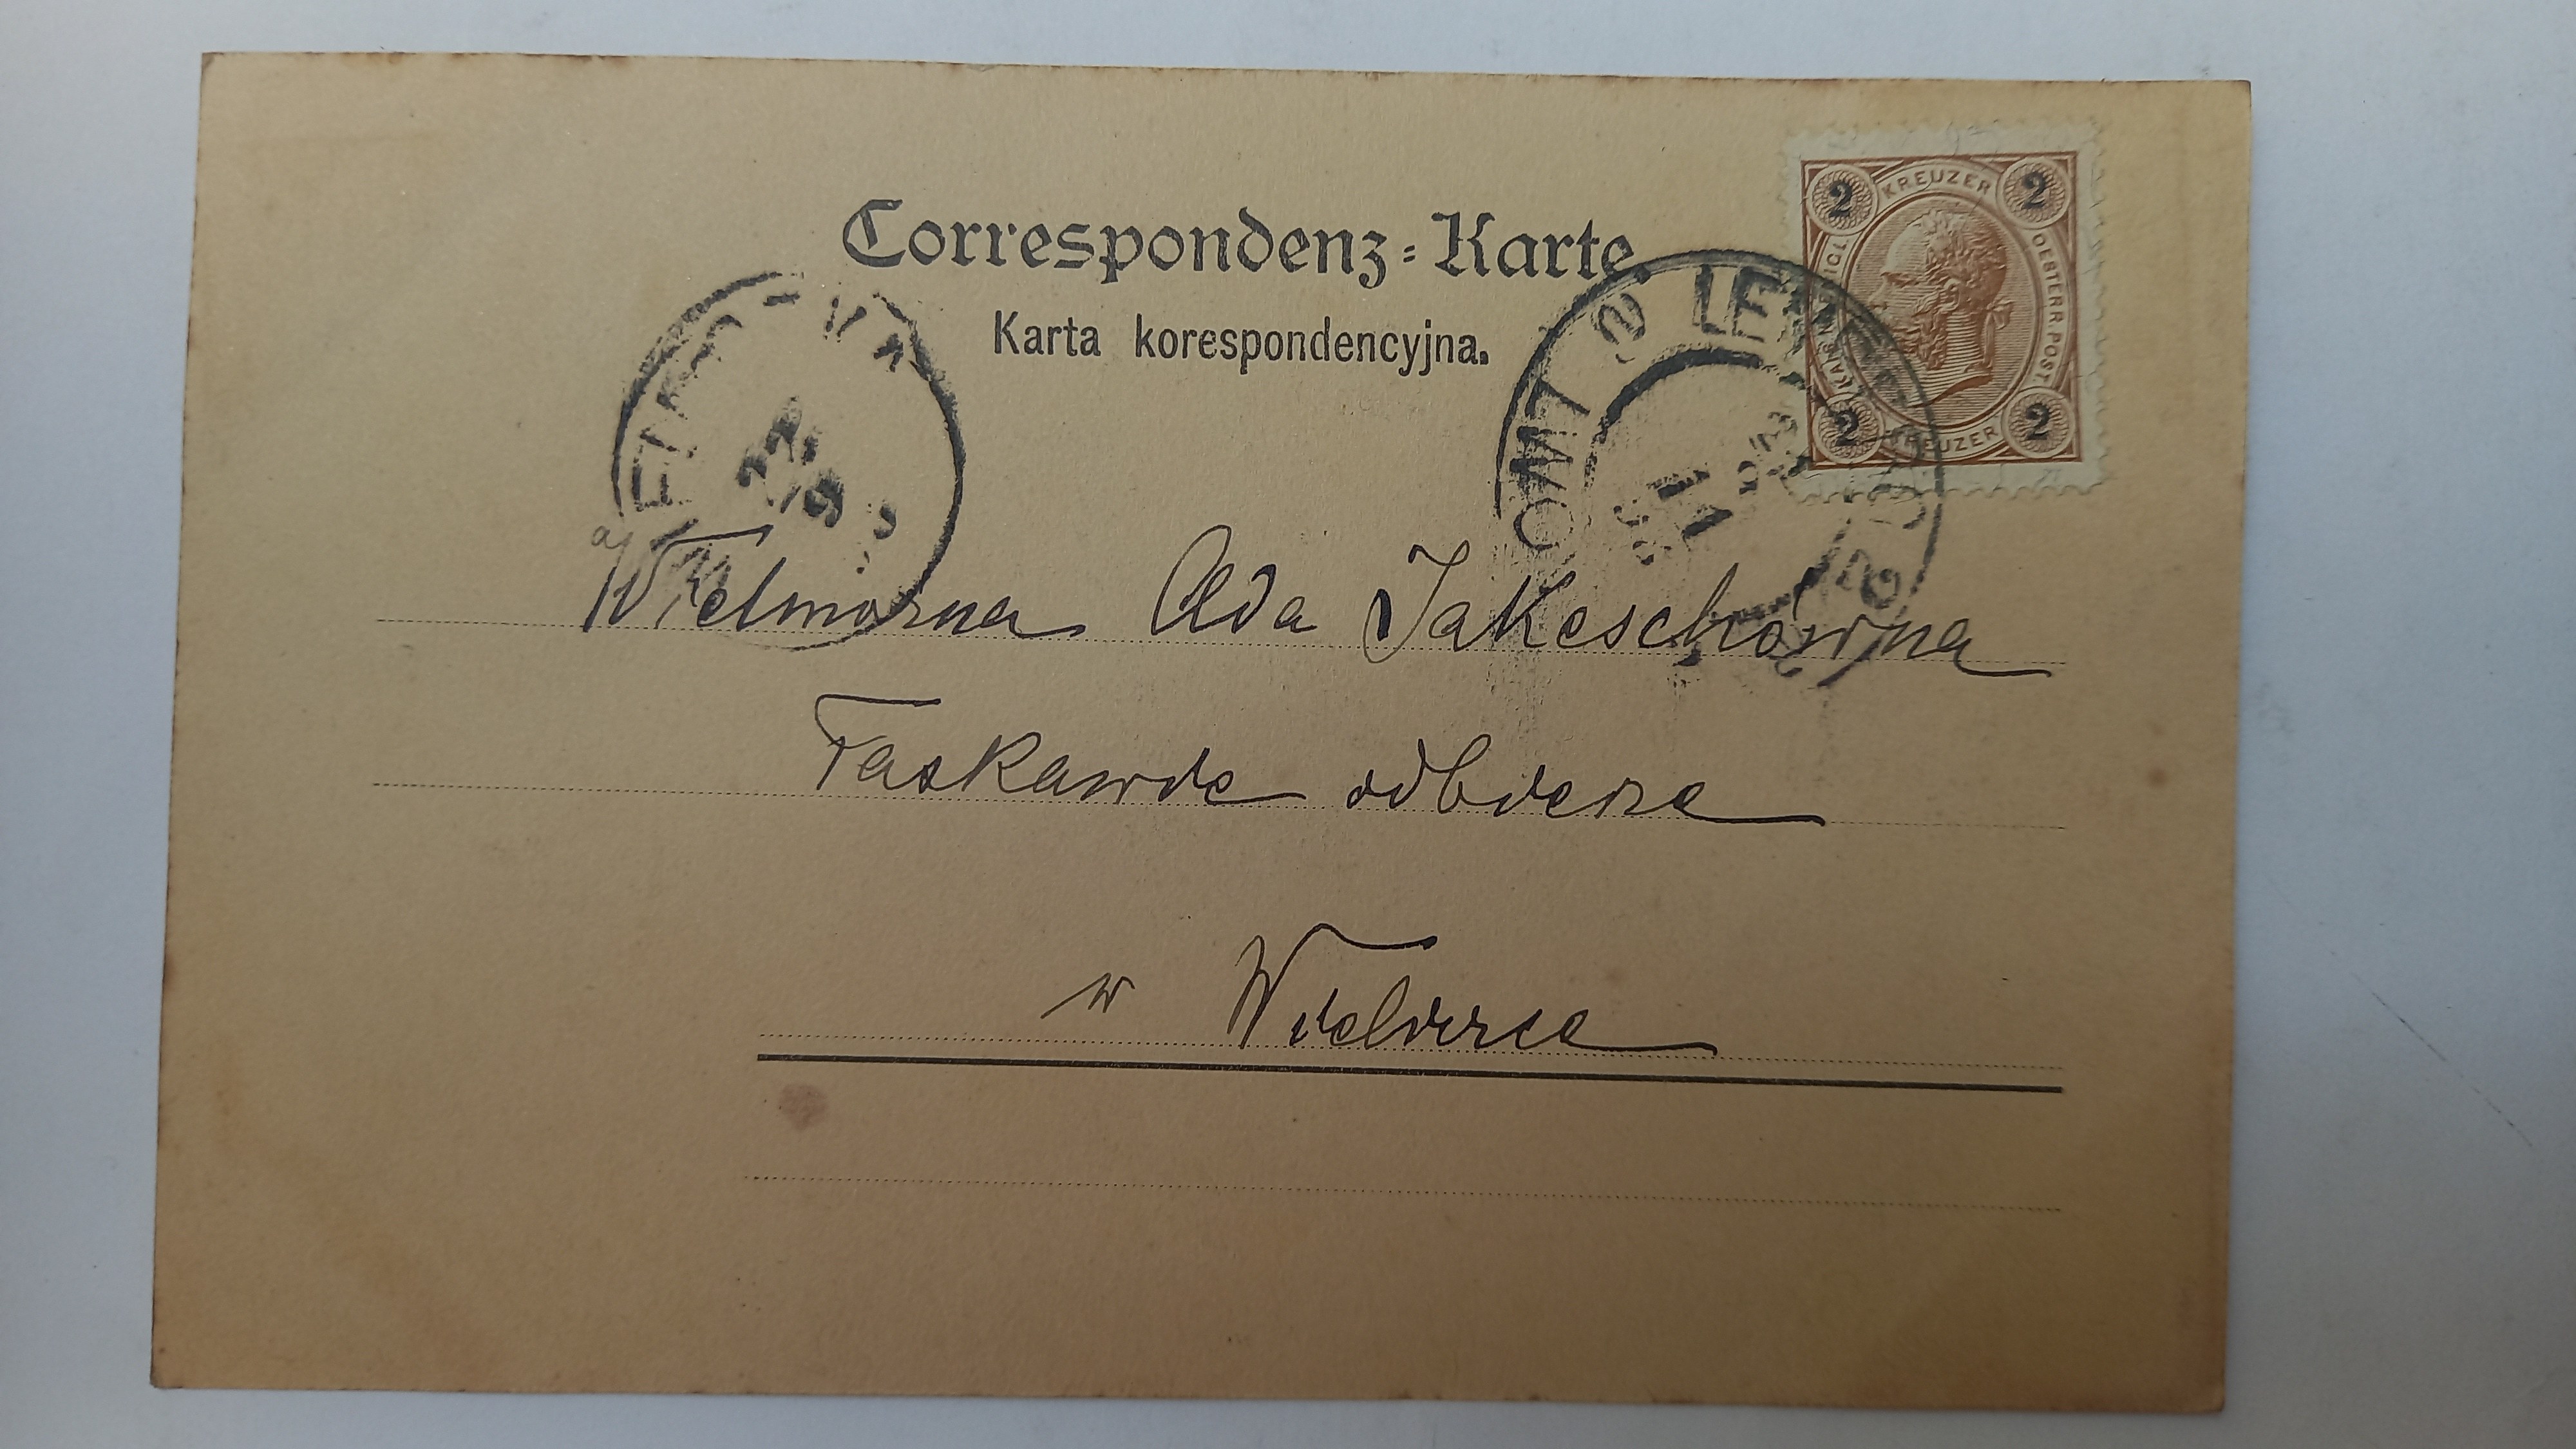 Correspondenz-Karte.
Karta korespondencyjna.
2 KREUZER 2
OESTERR. POST.
2 KREUZER 2
22
9
Wielmożna Ada Jakeschówna
Łaskawie odbierze
w Wieliczce